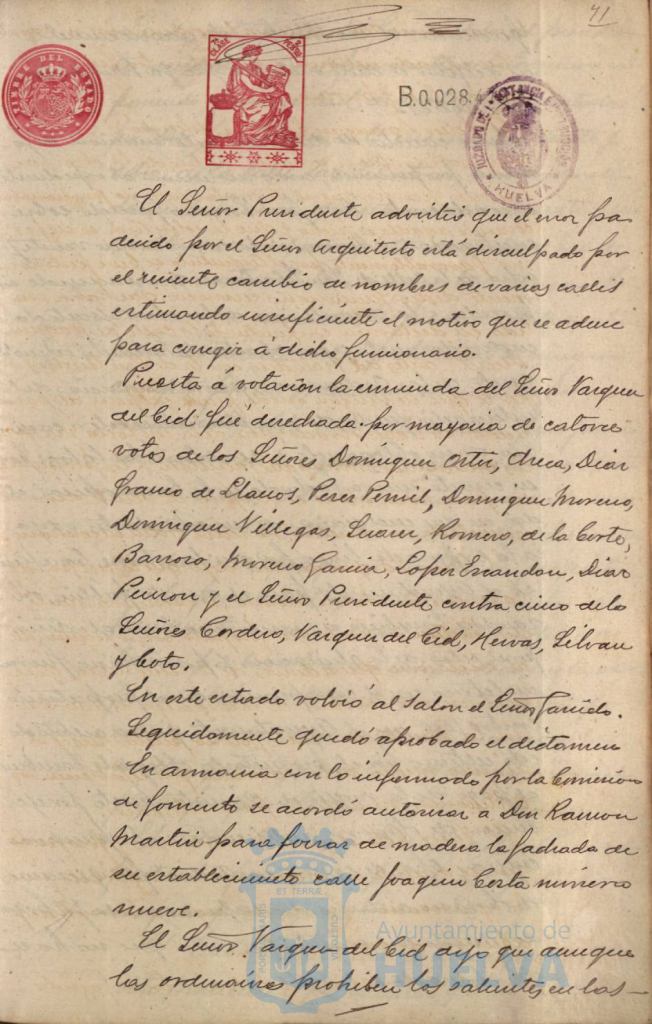 41
TIMBRE DEL ESTADO
7ª CLASE
B.0.028.
HUELVA
El Señor Presidente advirtió que el error pa
decido por el Señor Arquitecto está disculpado por
el reciente cambio de nombres de varias calles
estimando insuficiente el motivo que se aduce
para corregir á dicho funcionario.
Puesta á votación la enmienda del Señor Vazquez
del Cid fué desechada por mayoria de catorce
votos de los Señores Dominguez Ortiz, Checa, Diaz
Franco de Llanos, Perez Pomil, Dominguez Moreno,
Dominguez Villegas, Suarez, Romero, de la Corte,
Barroso, Moreno Garcia, Lopez Escandon, Diaz
y el Señor Presidente contra cinco de lo
Señores Cordero, Vazquez del Cid, Hervas, Silvan
y Coto.
En este estado volvió al salon el Señor Garrido.
Seguidamente quedó aprobado el dictamen
En armonia con lo informado por la Comision
de fomento se acordó autorizar á Don Ramon
Martin para forrar de madera la fachada de
su establecimiento calle Joaquin Costa número
nueve.
El Señor Vazquez del Cid dijo que aunque
las ordenanzas prohiben los salientes en las
Ayuntamiento de
HUELVA